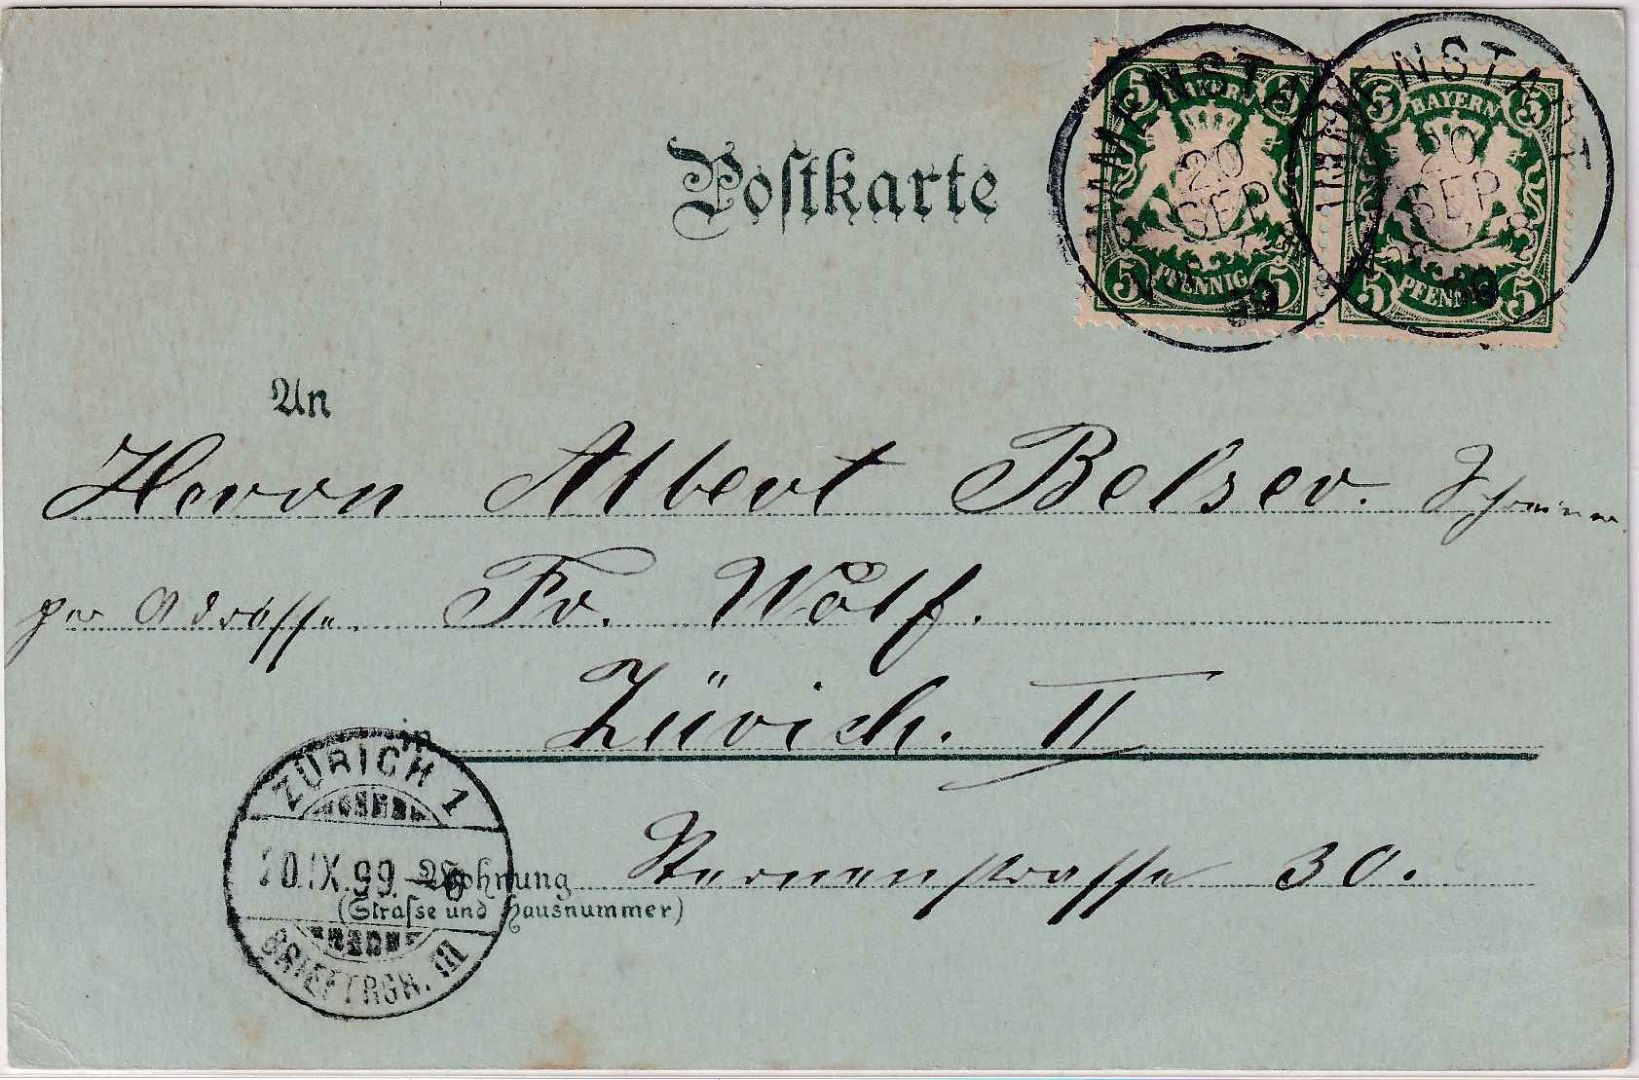 Postkarte
5 5
BAYERN
5 PFENNIG 5
5 5
BAYERN
5 PFENNIG 5
IMMENSTADT
20
SEP
99
IMMENSTADT
20
SEP
99
An
Herrn Albert Belser. Schreiner
per Adresse Fr. Wolf.
in Zürich. II
Wohnung Sternenstrasse 30.
(Straſse und Hausnummer)
ZÜRICH 1
20.IX.99.-6
BRIEFTRGR. III